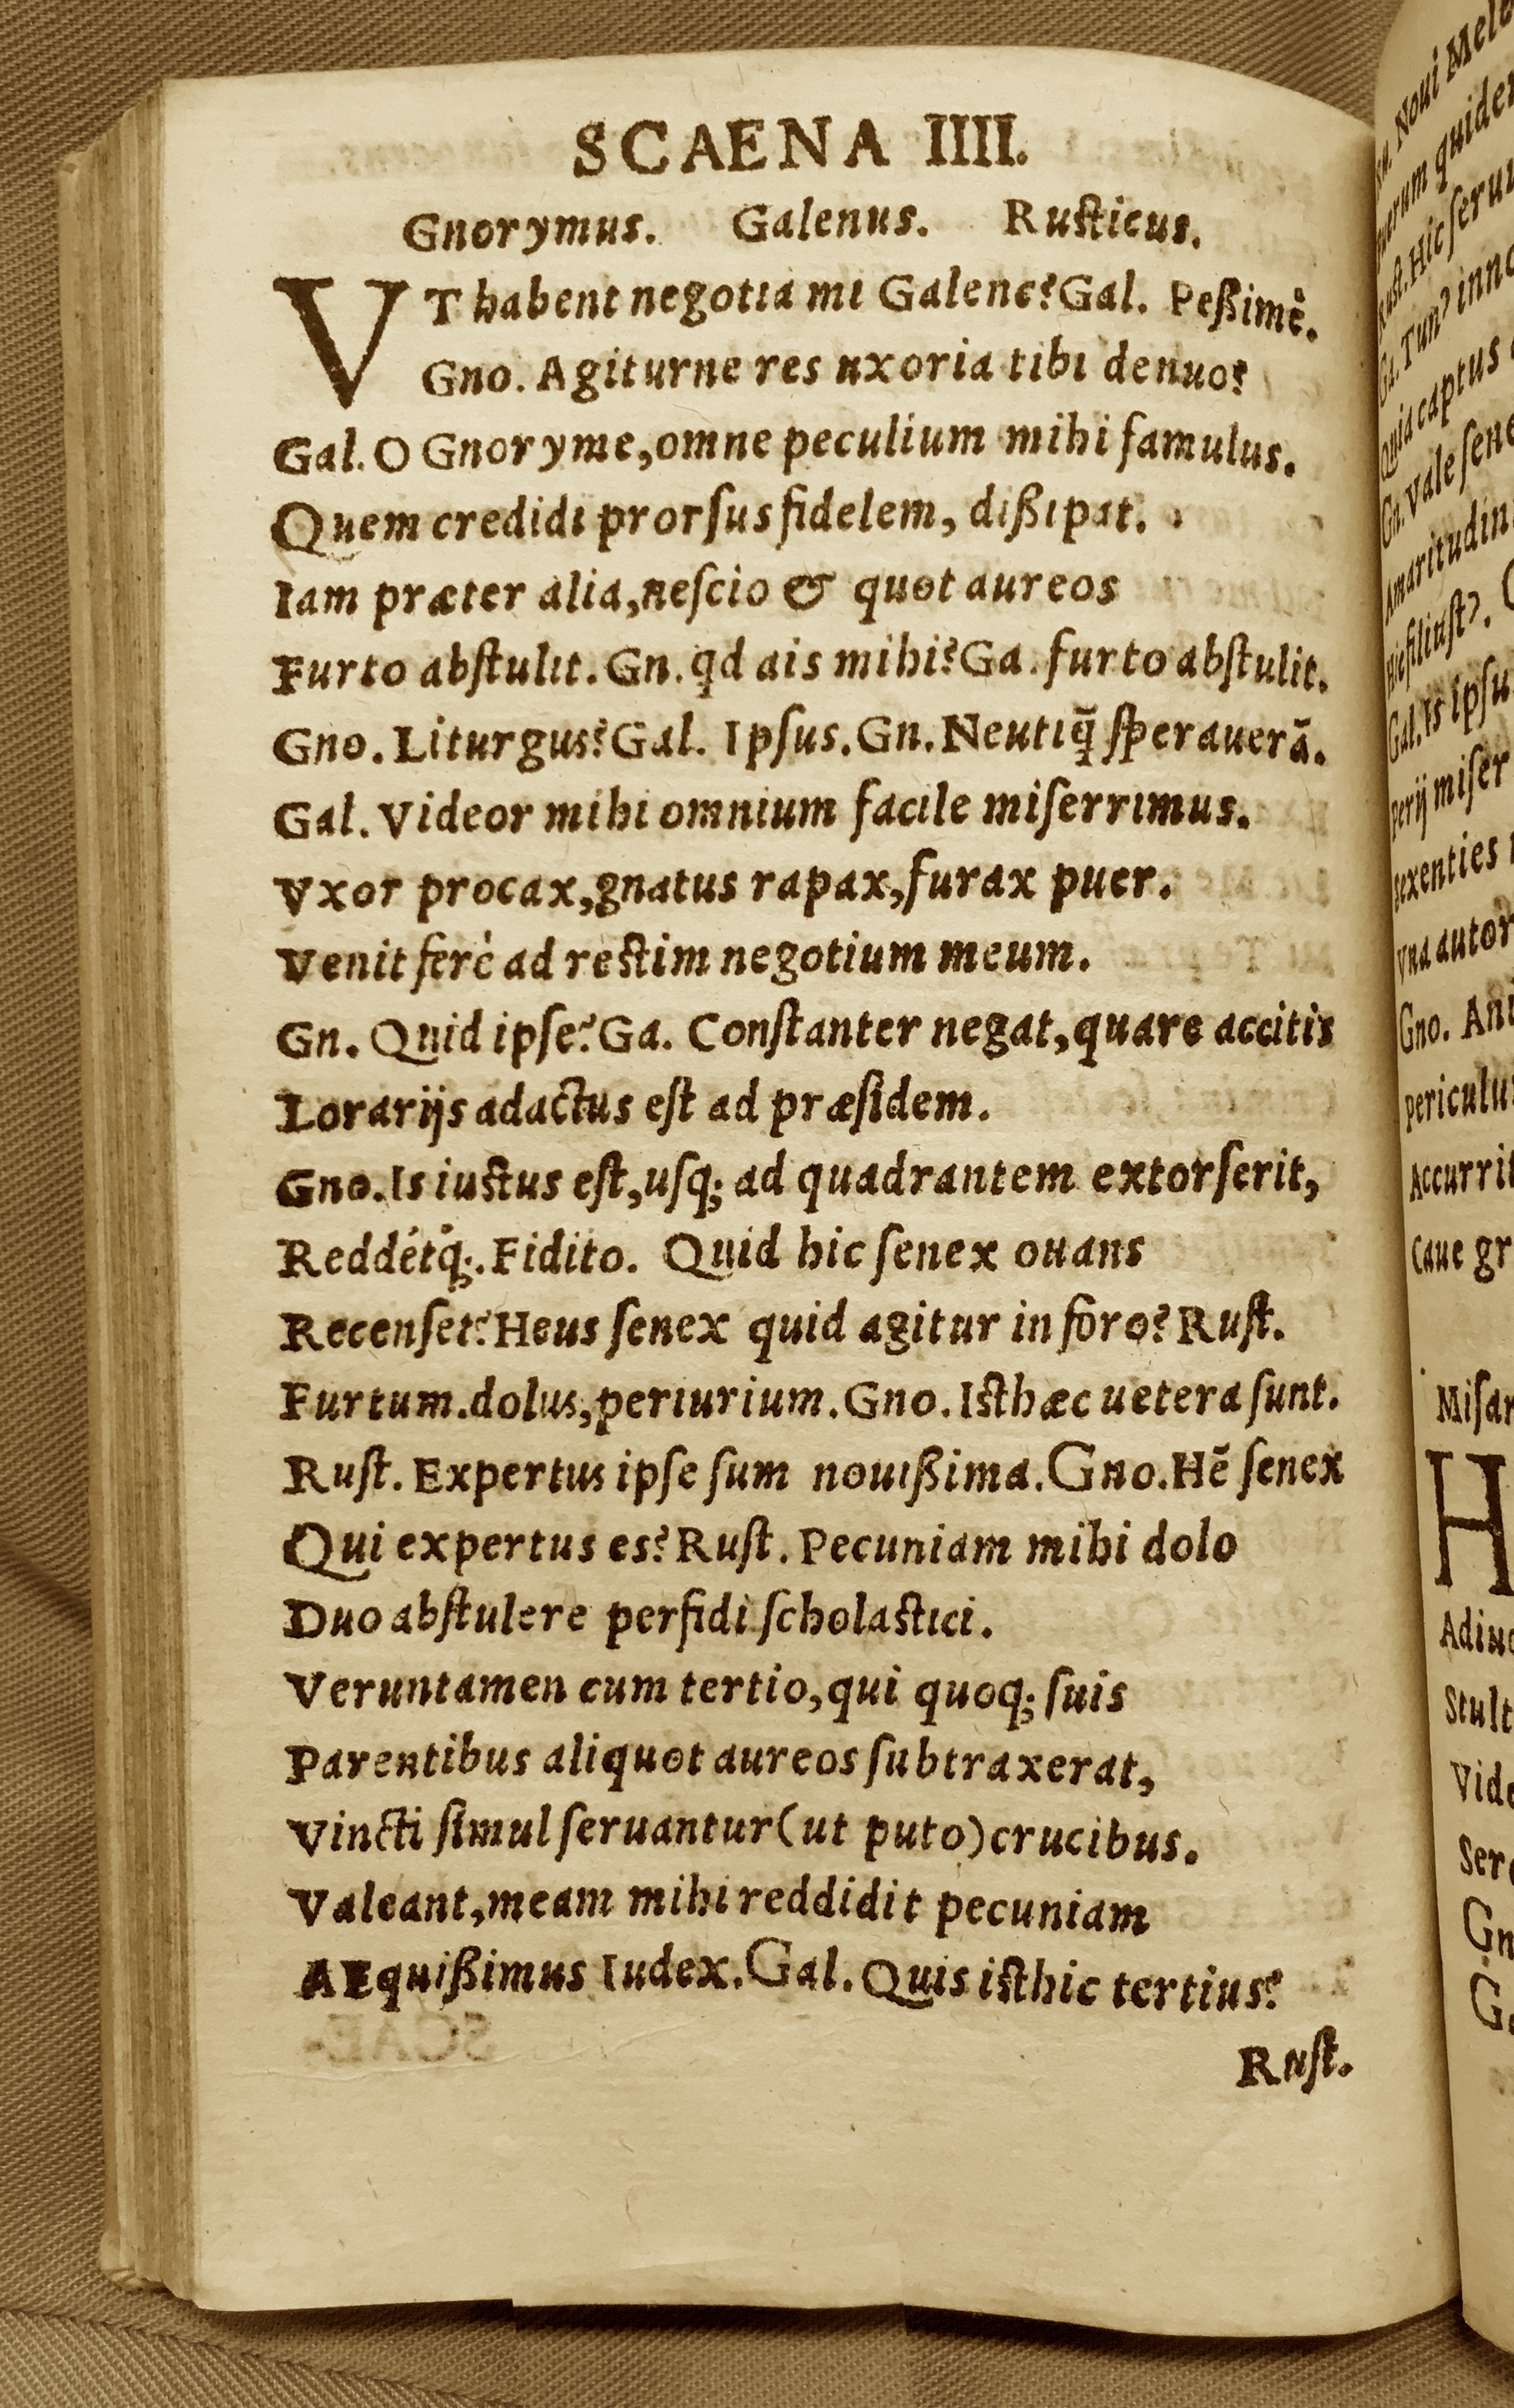 SCAENA IIII.
Gnorymus. Galenus. Rusticus.
VT habent negotia mi Galene? Gal. Peßimè.
Gno. Agiturne res uxoria tibi denuo?
Gal. O Gnoryme, omne peculium mihi famulus.
Quem credidi prorſus fidelem, dißipat.
Iam præter alia, neſcio & quot aureos
Furto abſtulit. Gn. qd ais mihi? Ga. furto abſtulit.
Gno. Liturgus? Gal. Ipſus. Gn. Neutiq̃ ſperauerã.
Gal. Videor mihi omnium facile miſerrimus.
Vxor procax, gnatus rapax, furax puer.
Venit ferè ad restim negotium meum.
Gn. Quid ipſe? Ga. Conſtanter negat, quare accitis
Lorarijs adactus eſt ad præſidem.
Gno. Is iustus eſt, uſq; ad quadrantem extorſerit,
Reddétq́;. Fidito. Quid hic ſenex ouans
Recenſet? Heus ſenex quid agitur in foro? Ruſt.
Furtum. dolus, periurium. Gno. Isthæc uetera ſunt.
Ruſt. Expertus ipſe ſum nouißima. Gno. Hẽ ſenex
Qui expertus es? Ruſt. Pecuniam mihi dolo
Duo abſtulere perfidi ſcholastici.
Veruntamen cum tertio, qui quoq; ſuis
Parentibus aliquot aureos ſubtraxerat,
Vincti ſimul ſeruantur (ut puto) crucibus.
Valeant, meam mihi reddidit pecuniam
AEquißimus Iudex. Gal. Quis isthic tertius?
Ruſt.
Noui
quidem
Ruſt. Hic
Ga. Tun'
Quia captus
Gn. Vale
Gal. Is
Perij miſer
Sexenties
Vna
Gno.
Accurrit
Caue
H